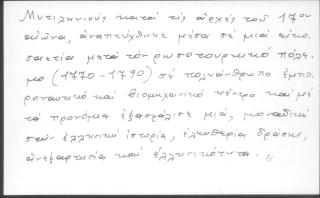 Μυτιληνιούς κατά τις αρχές του 17ου
αιώνα, αναπτύχθηκε μέσα σε μιά είκο-
σαετία μετά τον ρωσοτουρκικό πόλε-
μο (1770-1790) σέ πολυάνθρωπο εμπο-
ροναυτικό καί βιομηχανικό κέντρο καί μέ
τά προνόμια εξασφάλισε μιά, μοναδική
στήν ελληνική ιστορία, ελευθερία δράσης,
ανεξαρτησία καί ελληνικότητα.»